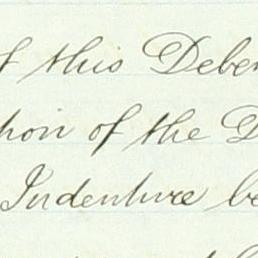 of this Deben
tion of the D
Indenture be